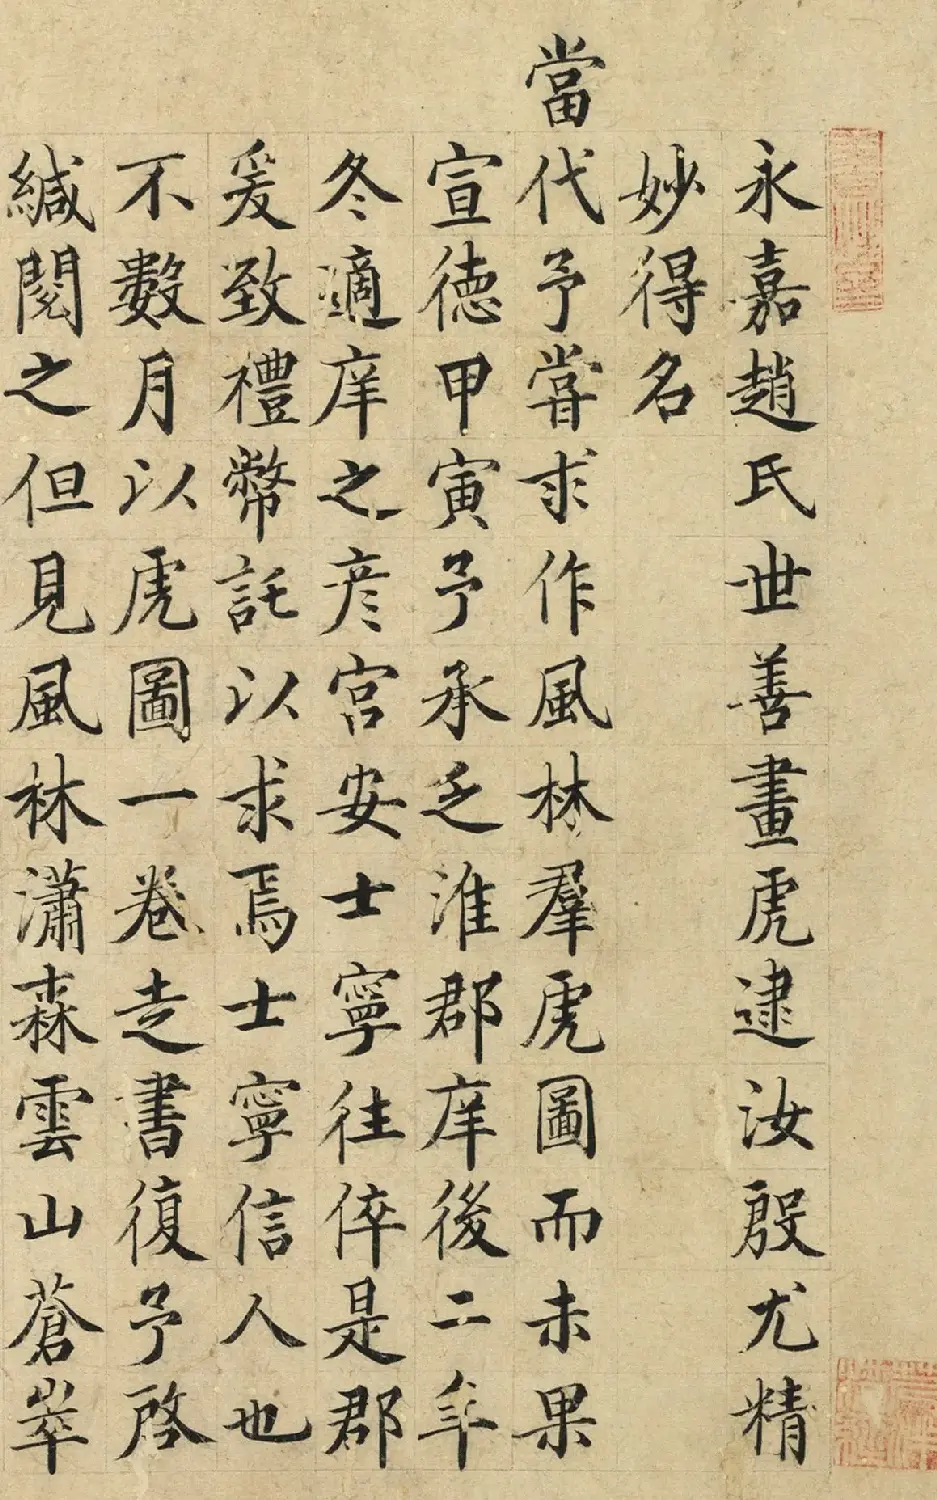 永嘉趙氏世善畫虎逮汝殷尤精
妙得名
當代予嘗求作風林羣虎圖而未果
宣德甲寅予承乏淮郡庠後二年
冬適庠之彦宫安士寧往倅是郡
爰致禮幣託以求焉士寧信人也
不數月以虎圖一卷走書復予啓
緘閱之但見風林瀟森雲山蒼崒